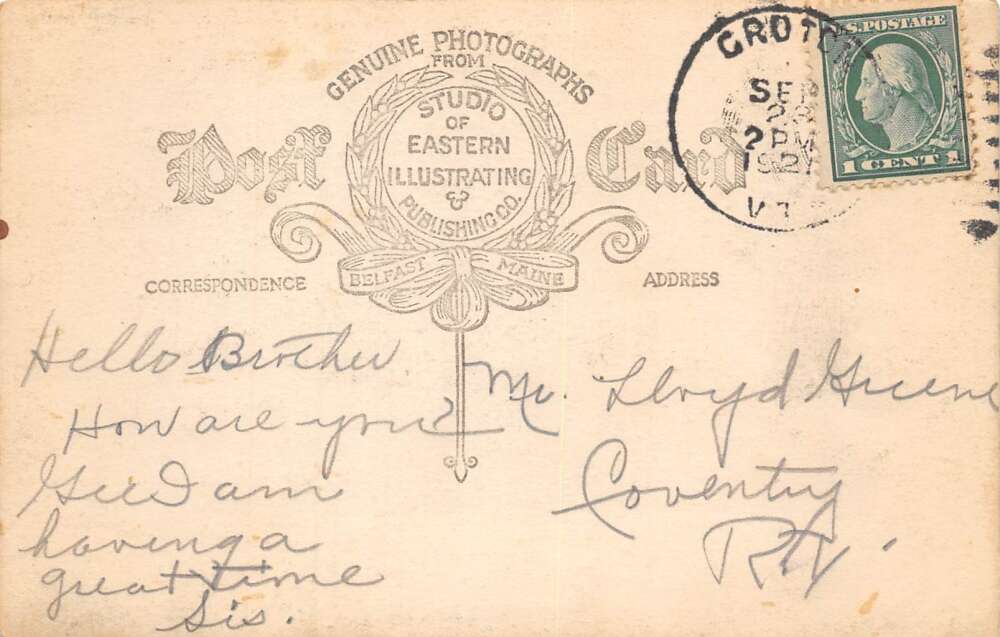 GENUINE PHOTOGRAPHS
FROM
STUDIO
OF
EASTERN
ILLUSTRATING
&
PUBLISHING CO.
BELFAST MAINE
Post Card
CORRESPONDENCE
ADDRESS
GROTON
SEP
23
2 PM
1921
VT
U.S. POSTAGE
1 CENT 1
Hello Brother
How are you?
Gee I am
having a
great time
Sis.
Mr. Lloyd Greene
Coventry